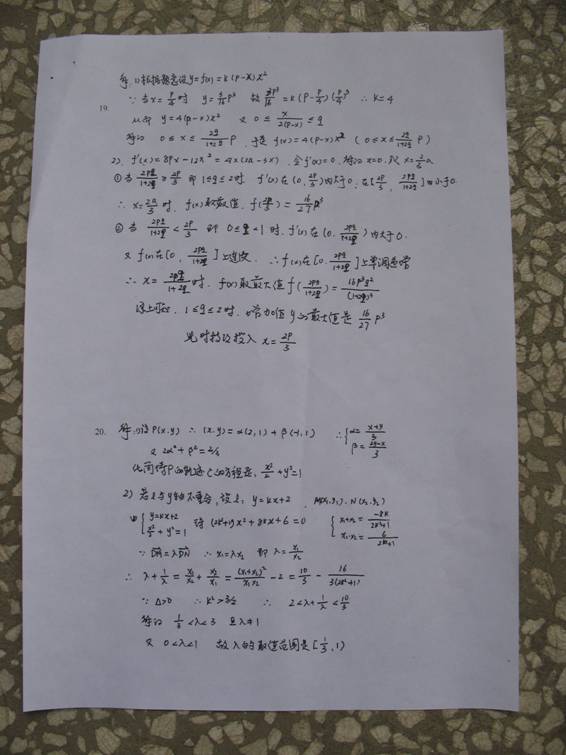 19. 解:(1)根据题意设y=f(x)=k(p-x)x²
∵当x=p/4时 y=3/16 p³ 故3p³/16=k(p-p/4)(p/4)² ∴k=4
从而 y=4(p-x)x² 又 0≤x/2(p-x)≤q
解得 0≤x≤2q/1+2q p, 于是 f(x)=4(p-x)x² (0≤x≤2q/1+2q p)
2). f'(x)=8px-12x²=4x(2a-3x), 令f'(x)=0, 解得x=0, 或x=2/3 a
①当2pq/1+2q≥2p/3 即1≤q≤2时 f'(x)在(0,2p/3)内大于0, 在[2p/3, 2pq/1+2q]内小于0
∴x=2a/3时 f(x)取最大值, f(2p/3)=16/27 p³
②当2pq/1+2q<2p/3 即 0≤q<1时, f'(x)在(0,2pq/1+2q)内大于0.
又f(x)在[0, 2pq/1+2q]上连续. ∴f(x)在[0,2pq/1+2q]上单调递增
∴x=2pq/1+2q时, f(x)取最大值f(2pq/1+2q)=16p³q²/(1+2q)³
综上所述, 1≤q≤2时, 增加值y的最大值是16/27 p³
此时技改投入x=2p/3
20. 解:(1)设P(x.y) ∴(x.y)=α(2,1)+β(-1,1) ∴{α=x+y/3 β=2y-x/3
又2α²+β²=2/3
化简得P的轨迹C的方程是: x²/2+y²=1
2)若l与y轴不重合, 设l: y=kx+2. M(x₁,y₁).N(x₂,y₂)
由{y=kx+2 x²/2+y²=1 得(2k²+1)x²+8kx+6=0 {x₁+x₂=-8k/2k²+1 x₁·x₂=6/2k²+1
∵DM=λDN ∴x₁=λx₂ 即λ=x₁/x₂
∴λ+1/λ=x₁/x₂+x₂/x₁=(x₁+x₂)²/x₁x₂-2=10/3-16/3(2k²+1)
∵Δ>0 ∴k²>3/2 ∴2<λ+1/λ<10/3
解得 1/3<λ<3 且λ≠1
又 0<λ<1 故λ的取值范围是[1/3,1)